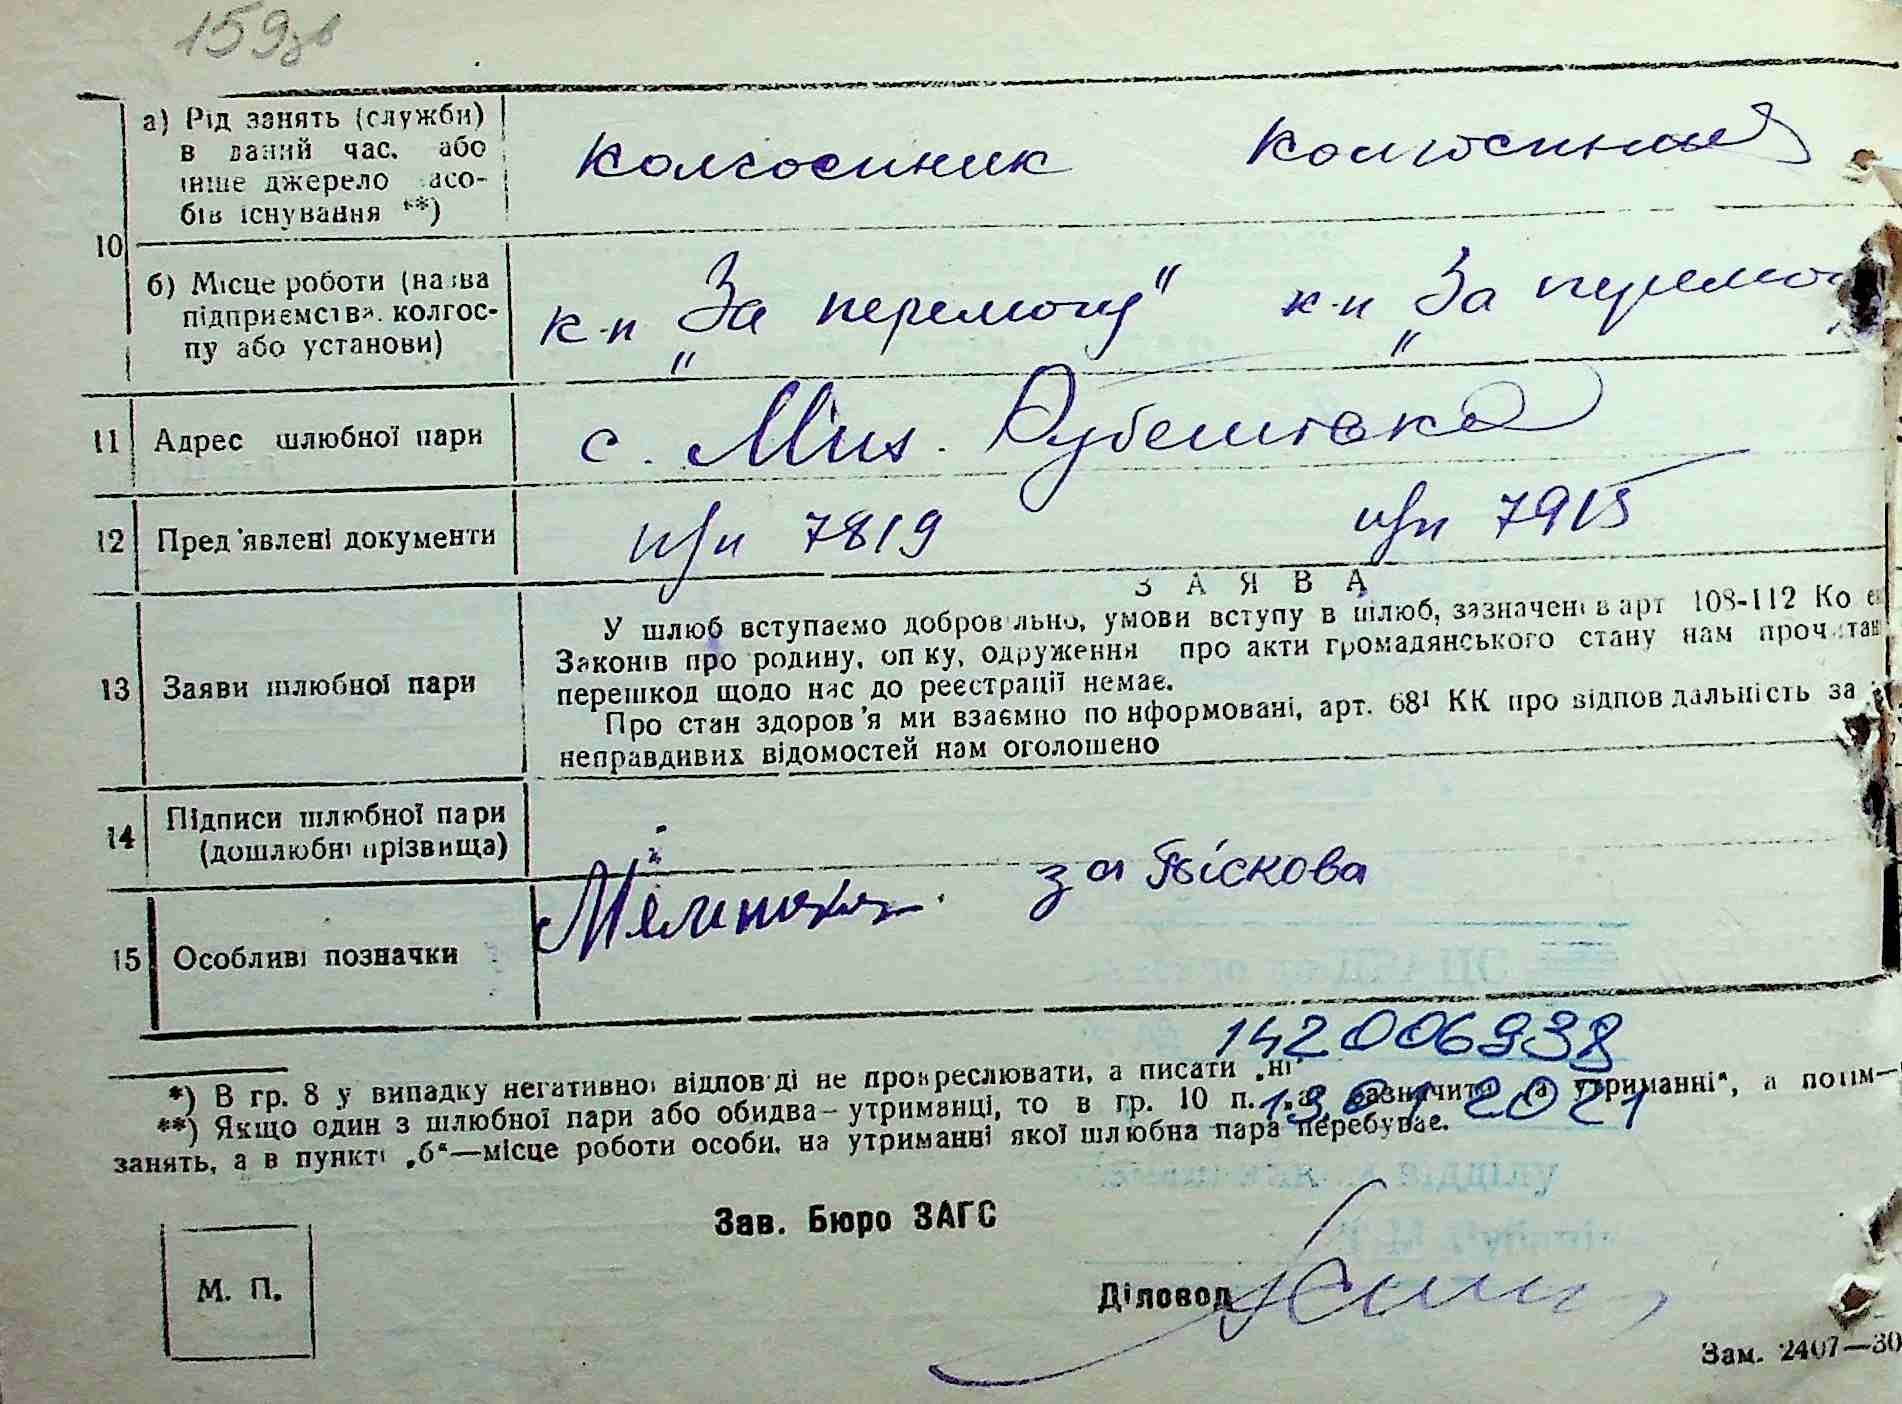 159зв
а) Рід занять (служби)
в даний час, або
інше джерело засо-
бів існування **)
колгоспник колгоспниця
10
б) Місце роботи (назва
підприємства, колгос-
пу або установи)
к-п „За перемогу" к-п „За перемогу
11 Адрес шлюбної пари
с. Мих. Рубешівка
12 Пред'явлені документи
п/п 7819 п/п 7915
З А Я В А
13 Заяви шлюбної пари
У шлюб вступаємо добровільно, умови вступу в шлюб, зазначені в арт 108-112 Ко
Законів про родину, опіку, одруження про акти громадянського стану нам прочитан
перешкод щодо нас до реєстрації немає.
Про стан здоров'я ми взаємно поінформовані, арт. 68¹ КК про відповідальність за
неправдивих відомостей нам оголошено
14 Підписи шлюбної пари
(дошлюбні прізвища)
за Піскова
15 Особливі позначки
142006938
13 01 2021
*) В гр. 8 у випадку негативної відповіді не прокреслювати, а писати „ні"
**) Якщо один з шлюбної пари або обидва – утриманці, то в гр. 10 п. „а" зазначити „на утриманні", а потім—
занять, а в пункті „б"—місце роботи особи, на утриманні якої шлюбна пара перебуває.
Зав. Бюро ЗАГС
М. П.
Діловод
Зам. 2407—30